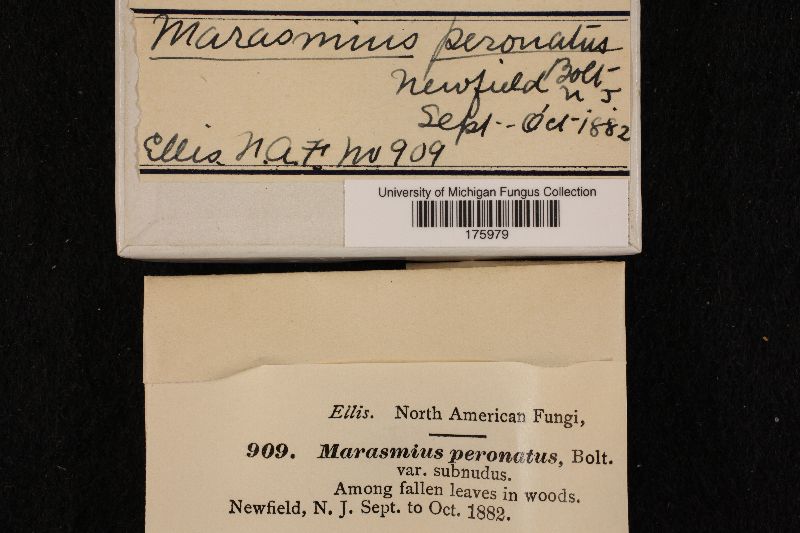 Marasmius peronatus
Bolt-
Newfield N J
Sept-- Oct-1882
Ellis. N.A.F. No 909
University of Michigan Fungus Collection
175979
Ellis. North American Fungi,
909. Marasmius peronatus, Bolt.
var. subnudus.
Among fallen leaves in woods.
Newfield, N. J. Sept. to Oct. 1882.